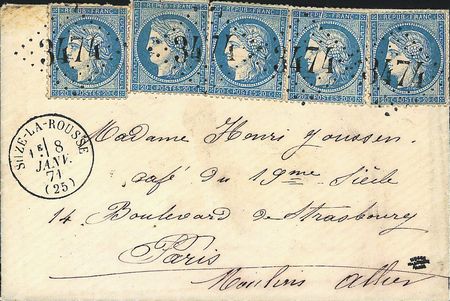 REPUB·FRANC· REPUB·FRANC· REPUB·FRANC· REPUB·FRANC· REPUB·FRANC·
3474 3474 3474 3474
20·C·POSTES·20·C 20·C·POSTES·20·C 20·C·POSTES·20·C 20·C·POSTES·20·C 20·C·POSTES·20·C
SUZE-LA-ROUSSE
8
JANV.
71
(25)
Madame Henri Joussen
café du 19me Siècle
14 Boulevard de Strasbourg
Paris
Moulins Allier